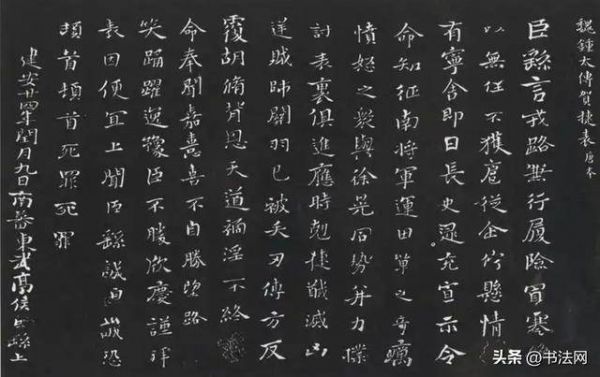 魏鍾太傅賀捷表唐本
臣繇言戎路兼行履險冒寒
以無任不獲扈從企佇懸情
有寧舍即日長史逯充宣示令
命知征南將軍運田單之奇厲
憤怒之衆與徐晃同勢并力撲
討表裏俱進應時剋捷馘滅凶
逆賊帥關羽已被矢刃傅方反
覆胡脩背恩天道禍淫不終
命奉聞嘉憙喜不自勝望路
笑踊躍逸豫臣不勝欣慶謹拜
表因便宜上聞臣繇誠惶誠恐
頓首頓首死罪死罪
建安廿四年閏月九日南蕃東武侯臣繇上
头条 @书法网